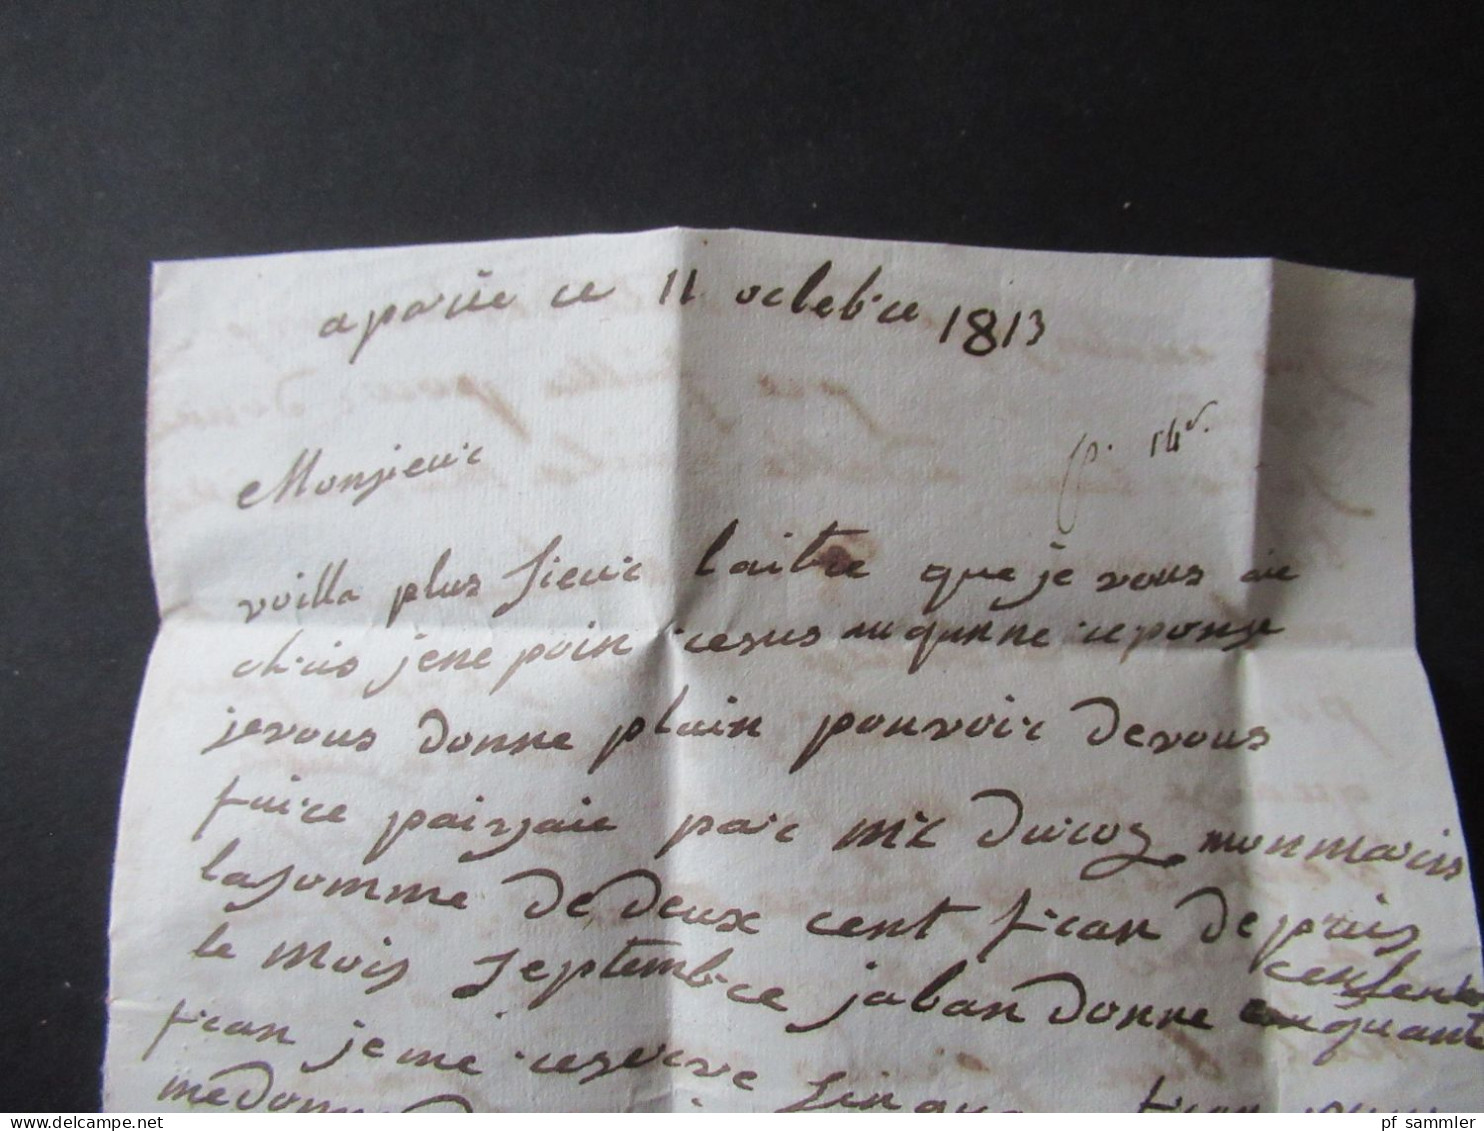 a parie ce 11 octobre 1813
p. 14r.
Monsieur
voilla plus sieur laitre que je vous aie
etris je ne poin resus auqunne reponse
je vous donne plain pouvoir de vous
faire paijaie par mr duroz mon maris
la somme de deux cent fran depuis
le mois septembre jabandonne
cen quante
fran je me reserve sinqua fran
me donne
pf sammler